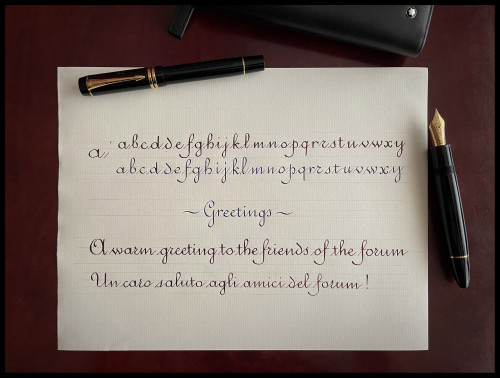 a// abcddefghijklmnopqrrstuvwxy
abcddefghijklmnopqrrstuvwxy
~ Greetings ~
A warm greeting to the friends of the forum
Un caro saluto agli amici del forum!